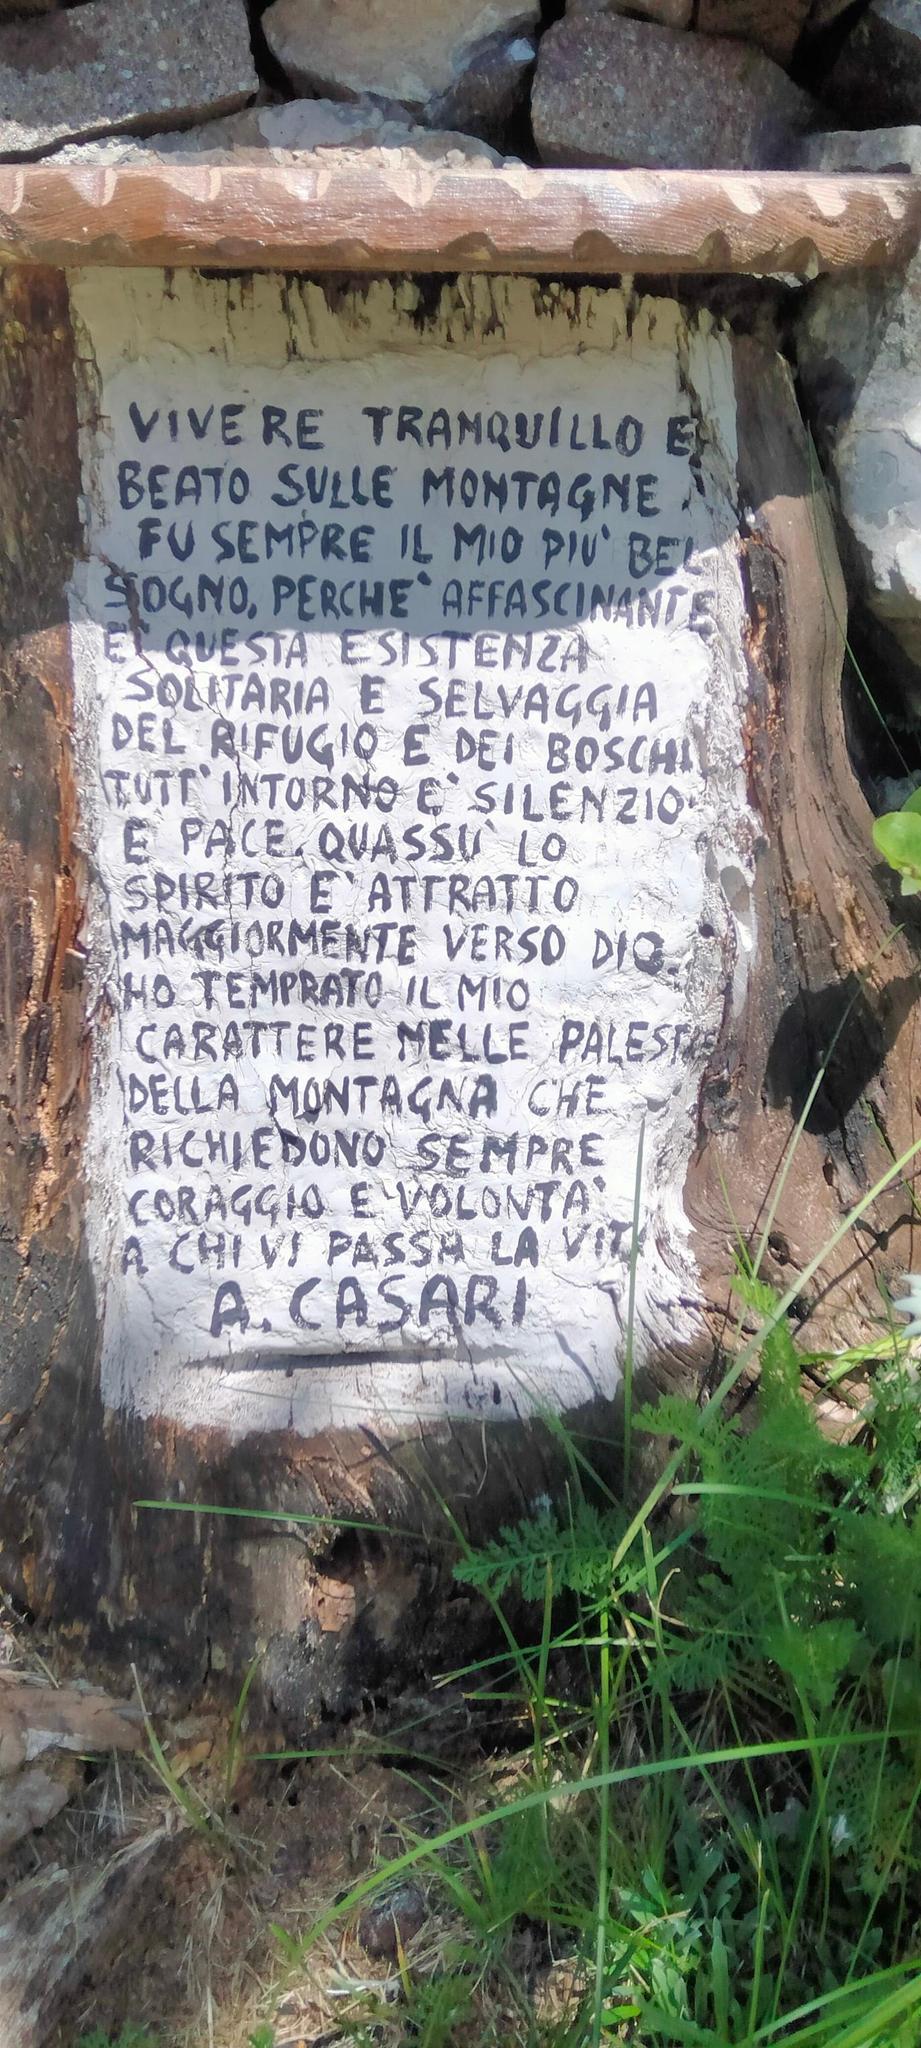 VIVERE TRANQUILLO E
BEATO SULLE MONTAGNE
FU SEMPRE IL MIO PIU' BEL
SOGNO, PERCHE' AFFASCINANTE
E' QUESTA ESISTENZA
SOLITARIA E SELVAGGIA
DEL RIFUGIO E DEI BOSCHI
TUTT'INTORNO E' SILENZIO
E PACE. QUASSU' LO
SPIRITO E' ATTRATTO
MAGGIORMENTE VERSO DIO.
HO TEMPRATO IL MIO
CARATTERE NELLE PALESTRE
DELLA MONTAGNA CHE
RICHIEDONO SEMPRE
CORAGGIO E VOLONTA'
A CHI VI PASSA LA VIT
A. CASARI